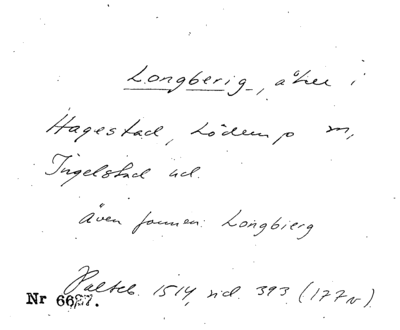 Longberig, åker i
Hagestad, Löderup sn,
Ingelstad hd.
Även formen: Longbierg
Palteb. 1514, sid. 393 (177v).
Nr 6687.